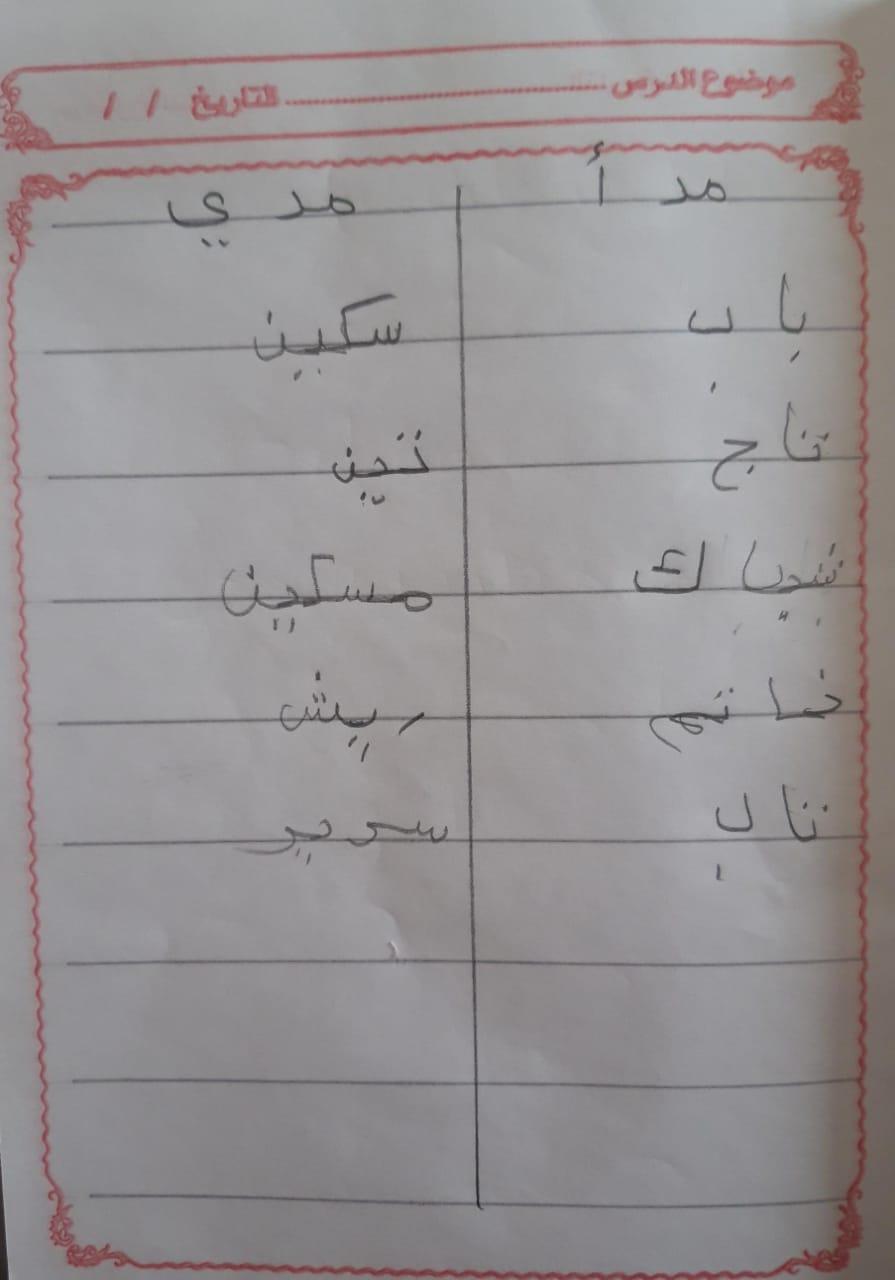 موضوع الدرس ........................ التاريخ / /
مد أ مد ي
باب سكين
تاج تين
شباك مسكين
خاتم ريش
ناب سرير